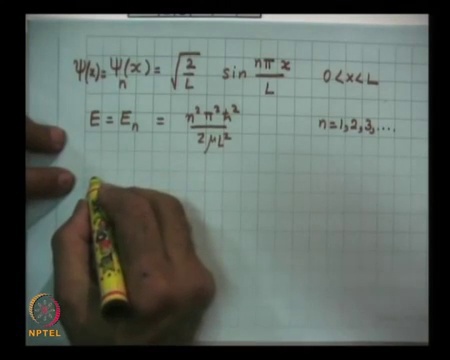 ψ(x) = ψₙ(x) = √(2/L) sin nπx/L 0 < x < L
E = Eₙ = n²π²ħ²/2μL² n = 1, 2, 3, ....
NPTEL